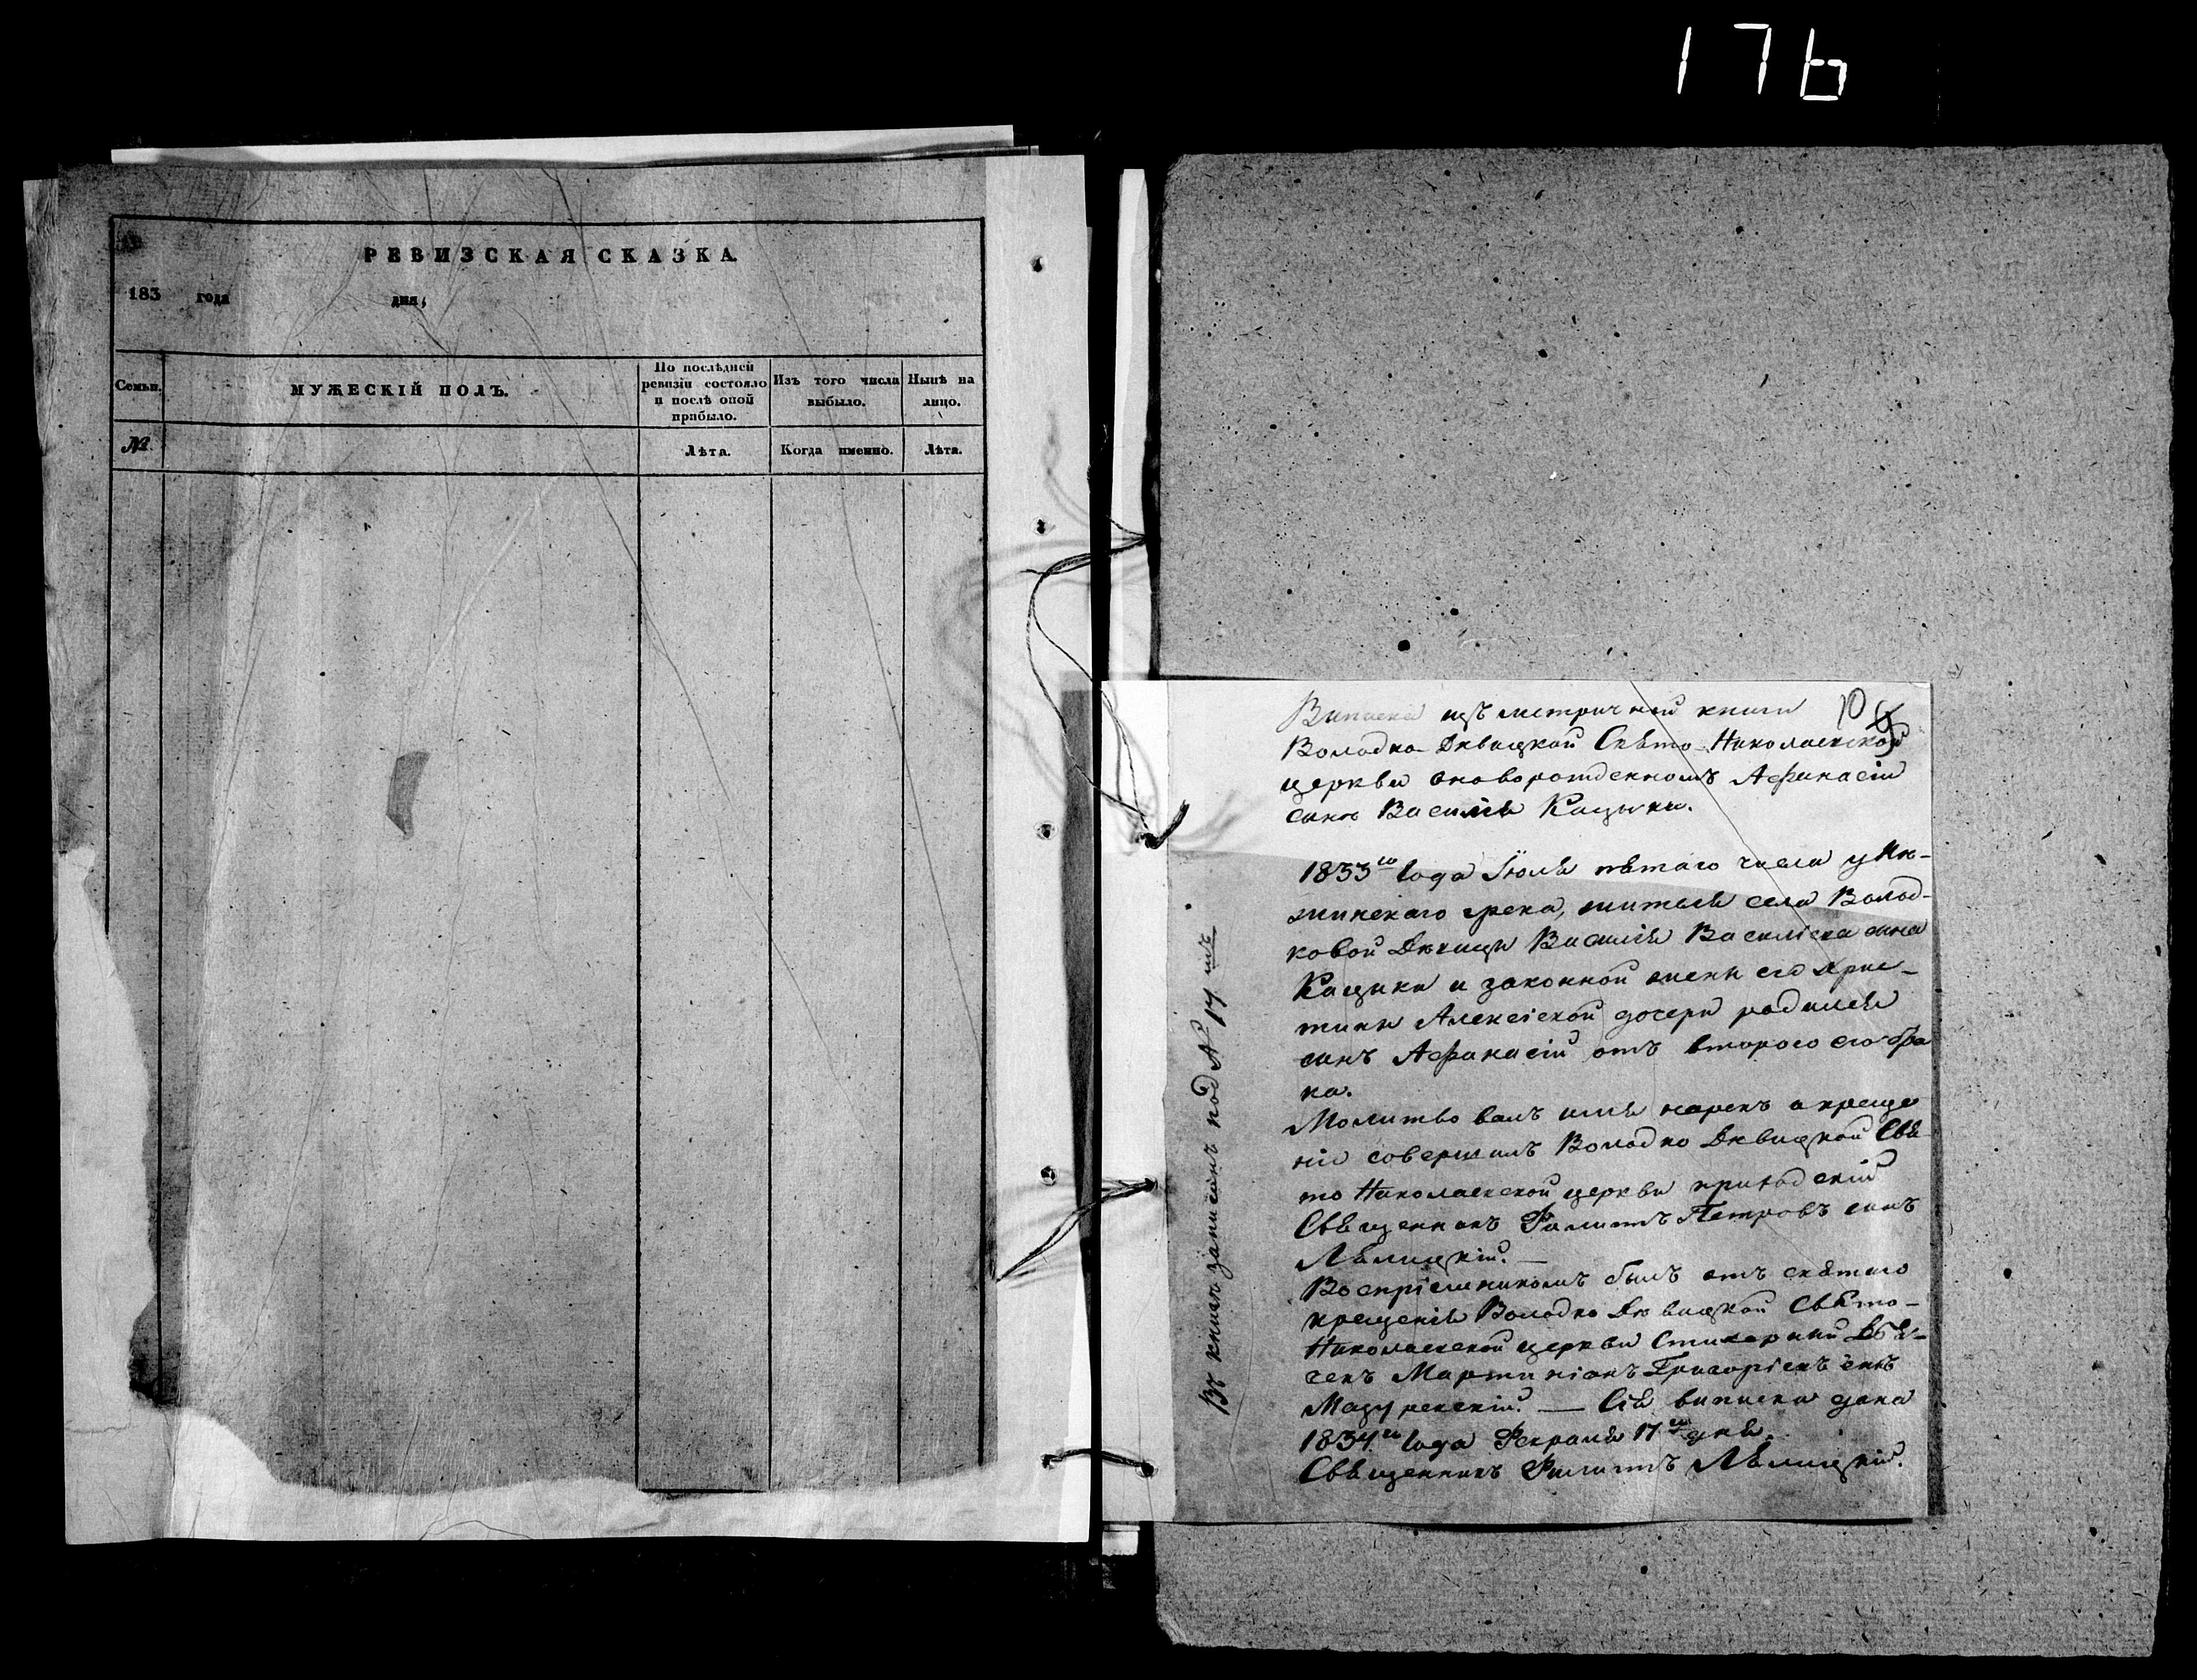 176
РЕВИЗСКАЯ СКАЗКА.
183 года дня,
Семьи.
МУЖЕСКІЙ ПОЛЪ.
По послѣдней
ревизіи состояло
и послѣ оной
прибыло.
Изъ того числа
выбыло.
Нынѣ на
лицо.
№
Лѣта.
Когда именно.
Лѣта.
10
Виписка изъ метричной книги
Володко Дѣвицкой Свято-Николаевской
церкви оноворожденномъ Афанасіи
синѣ Василія Кацики.
1833го года Іюля пятаго числа у Нѣ-
жинскаго грека, жителя села Волод-
ковой Дѣвици Василія Василіева сина
Кацики и законной жени его Хрис-
тини Алексіевой дочери родился
синъ Афанасій отъ второго его бра
ка.
Молитвовалъ имя нарекъ и креще
ніе совершилъ Володко Дѣвицкой Свя-
то Николаевской церкви приходскій
Священникъ Филиппъ Петровъ синъ
Лѣлицкій. —
Воспріемникомъ былъ отъ святаго
крещенія Володко Дѣвицкой Свято-
Николаевской церкви Стихарний Дья-
чекъ Мартиніанъ Григоріевъ синъ
Мазуревскій. — Сія виписка дана
1834го года Февраля 17го дня.
Священникъ Филиппъ Лѣлицкій.
Въ книгѣ записанъ под № 17мъ